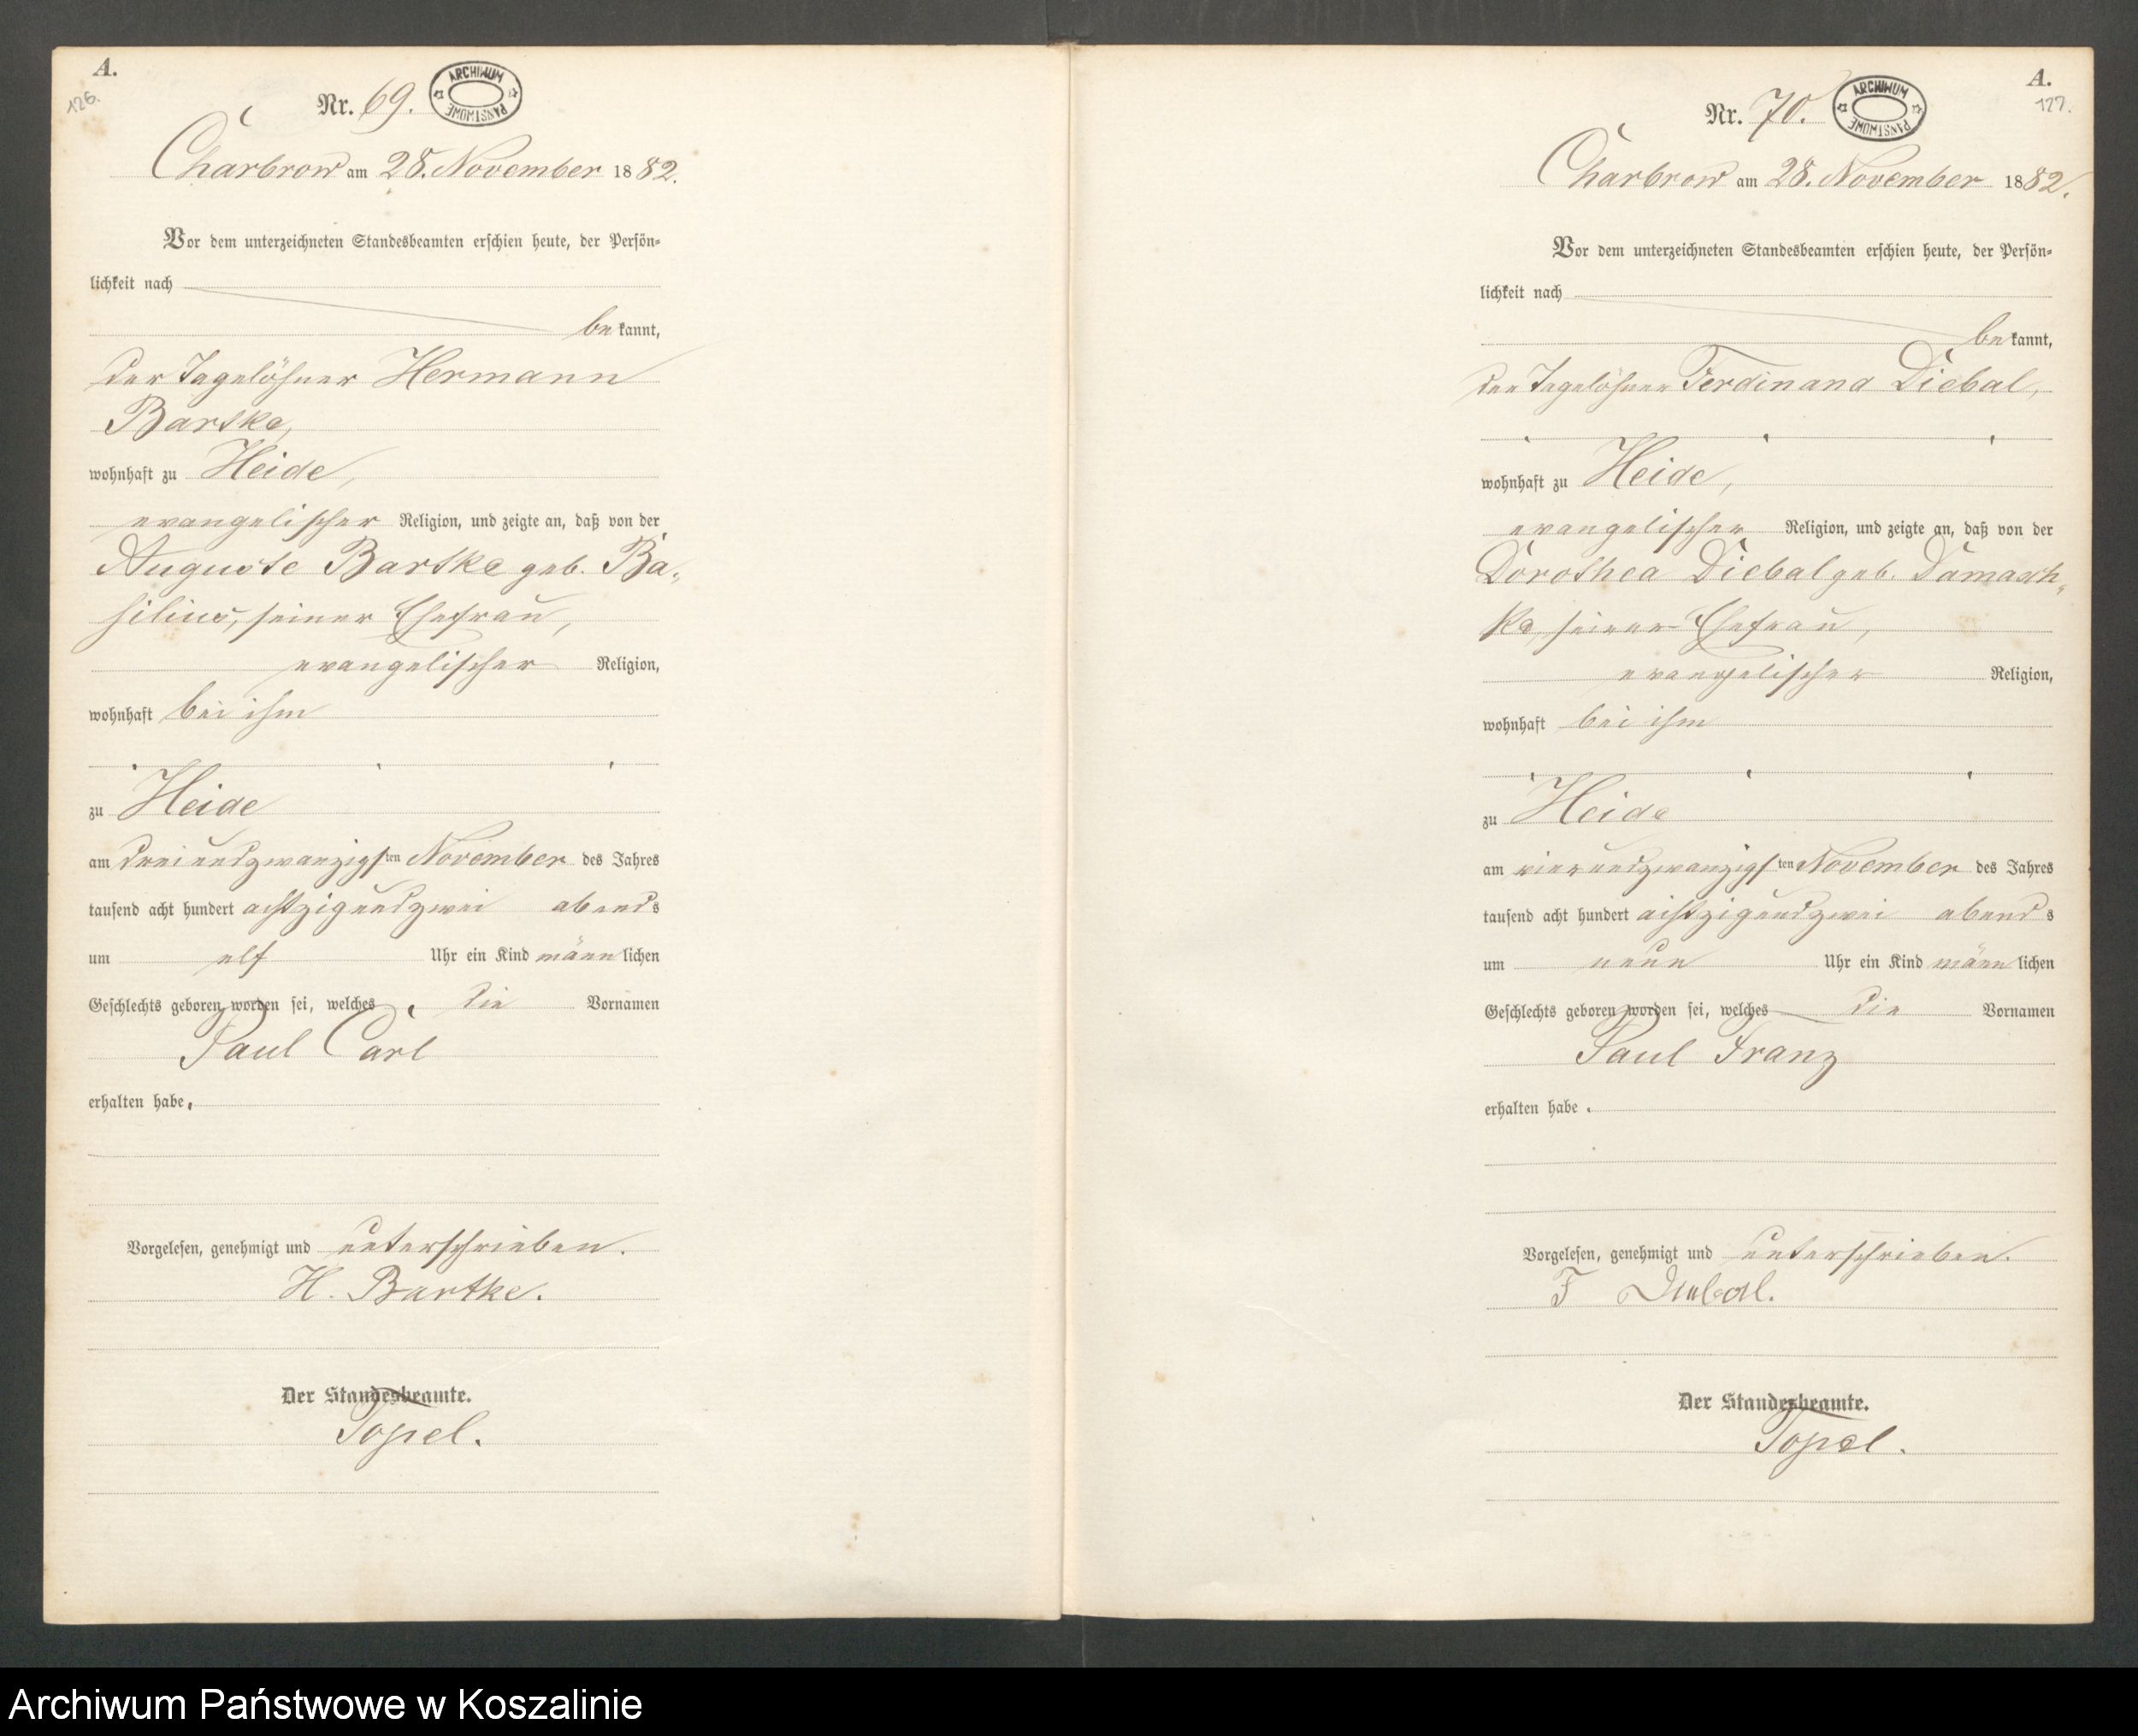 A.
126.
Nr. 69.
ARCHIWUM PAŃSTWOWE
Charbrow am 28. November 1882.
Vor dem unterzeichneten Standesbeamten erschien heute, der Persön-
lichkeit nach
bekannt,
der Tagelöhner Hermann
Bartke,
wohnhaft zu Heide,
evangelischer Religion, und zeigte an, daß von der
Auguste Bartke geb. Ba-
silius, seiner Ehefrau,
evangelischer Religion,
wohnhaft bei ihm
zu Heide
am dreiundzwanzigsten November des Jahres
tausend acht hundert achtzigundzwei abends
um elf Uhr ein Kind männlichen
Geschlechts geboren worden sei, welches die Vornamen
Paul Carl
erhalten habe.
Vorgelesen, genehmigt und unterschrieben.
H. Bartke.
Der Standesbeamte.
Topel.
A.
127.
Nr. 70.
ARCHIWUM PAŃSTWOWE
Charbrow am 28. November 1882.
Vor dem unterzeichneten Standesbeamten erschien heute, der Persön-
lichkeit nach
bekannt,
der Tagelöhner Ferdinand Diebal,
wohnhaft zu Heide,
evangelischer Religion, und zeigte an, daß von der
Dorothea Diebal geb. Damasch-
ke, seiner Ehefrau,
evangelischer Religion,
wohnhaft bei ihm
zu Heide
am vierundzwanzigsten November des Jahres
tausend acht hundert achtzigundzwei abends
um neun Uhr ein Kind männlichen
Geschlechts geboren worden sei, welches die Vornamen
Paul Franz
erhalten habe.
Vorgelesen, genehmigt und unterschrieben.
F Diebal.
Der Standesbeamte.
Topel.
Archiwum Państwowe w Koszalinie